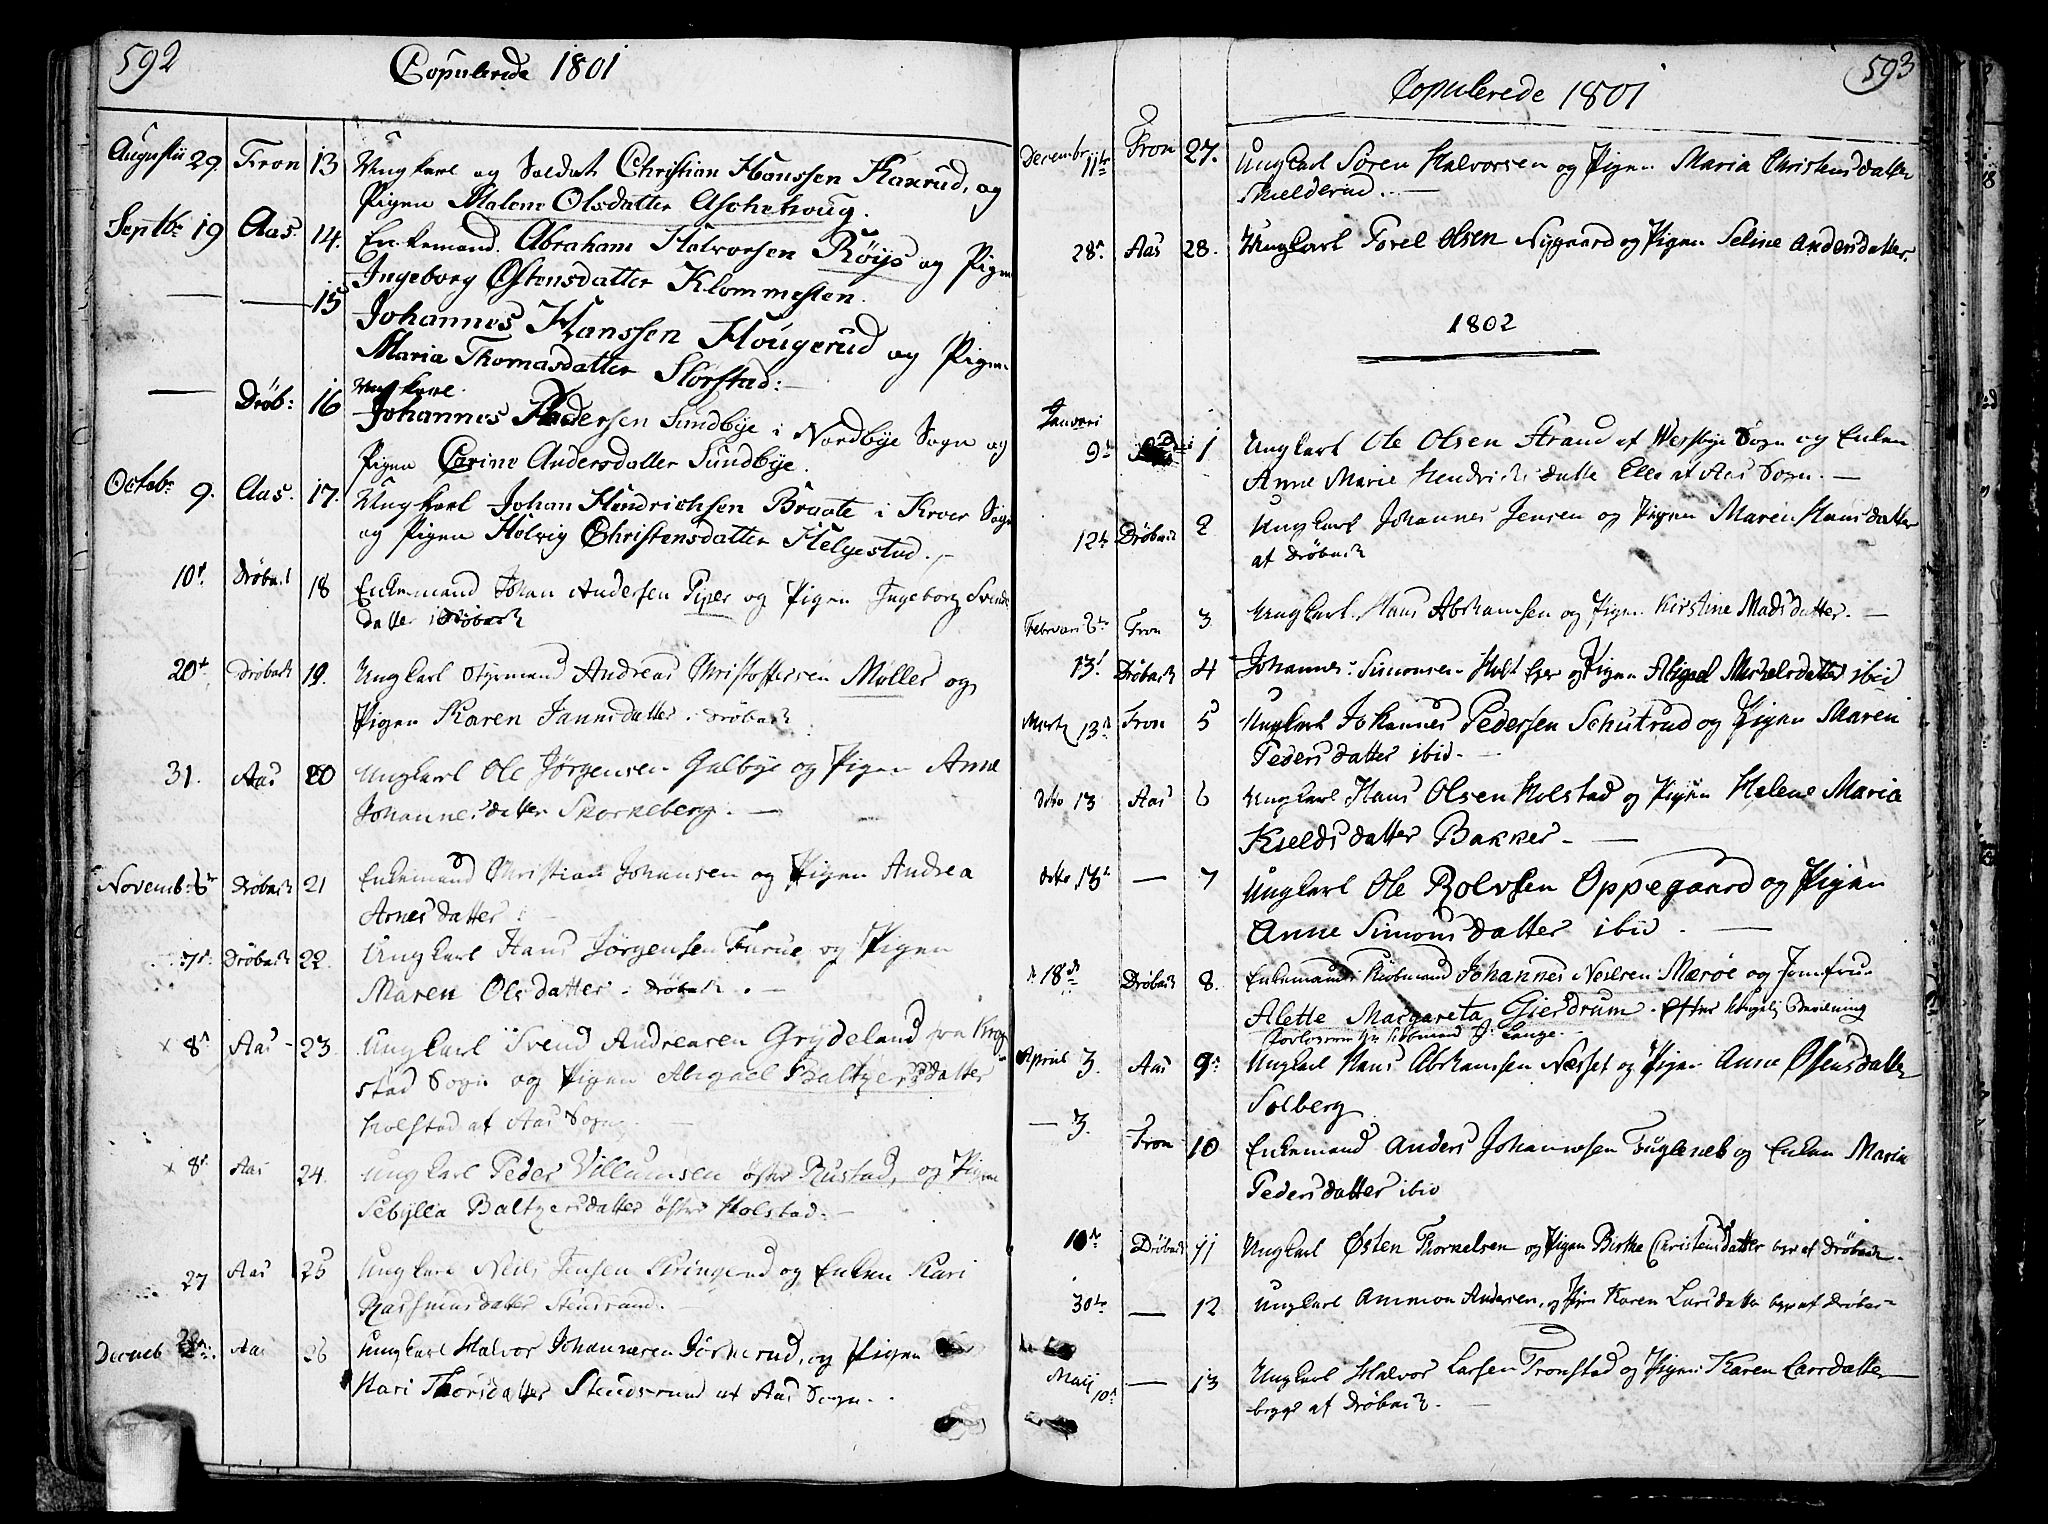 592
Copulerede 1801
Augustii 29. Fron 13 Ungkarl og Soldat Christian Hanssen Kaxrud, og
Pigen Malene Olsdatter Aschehoug.
Septbr 19 Aas. 14. Enkemand Abraham Halvorsen Röijs og Pigen
Ingeborg Östensdatter Klommesten.
— — 15 Johannes Hanssen Hougerud og Pigen
Maria Thomasdatter Storstad:
— Dröb: 16 Ungkarl
Johannes Pedersen Sundbye i Nordbye Sogn og
Pigen Carine Andersdatter Sundbye.
Octob. 9. Aas. 17. Ungkarl Johan Hendrichsen Braate i Kroer Sogn
og Pigen Helvig Christensdatter Helgestad.
10d Dröbach 18 Enkemand Johan Andersen Piper og Pigen Ingeborg Svends
datter i Dröbach
20d Dröbach 19. Ungkarl Styrmand Andreas Christoffersen Møller og
Pigen Karen Jannsdatter i Dröbach
31. Aas 20 Ungkarl Ole Jørgensen Galbye og Pigen Anne
Johannesdatter Skorkeberg.
Novemb: 6d Dröbach 21 Enkemand Christian Johansen og Pigen Andrea
Arnesdatter
7d Dröbach 22. Ungkarl Hans Jørgensen Furue og Pigen
Maren Olsdatter i Dröbach.
x 8d Aas 23. Ungkarl Svend Andreasen Grydeland fra Krog
stad Sogn og Pigen Abigael Baltzersdatter
Holstad af Aas Sogn
x 8d Aas 24. Ungkarl Peder Villumsen østre Rustad, og Pigen
Sebylla Baltzersdatter østre Holstad.
27 Aas 25 Ungkarl Niels Jensen og Enken Kari
Rasmusdatter Stensrud.
Decmeb Aas 26 Ungkarl Halvor Johannesen og Pigen
Kari Thorsdatter Stensrud af Aas Sogn.
593
Copulerede 1801
Decembr 11te Fron 27. Ungkarl Søren Halvorsen og Pigen Maria Christensdatter
Skielderud.
28d Aas 28. Ungkarl Torel Olsen Nygaard og Pigen Seline Andersdatter.
1802
Januari
9de 1 Ungkarl Ole Olsen Strand af Wessbye Sogn og Enken
Anne Marie Hendrichsdatte af Aas Sogn.
12te Dröbach 2 Ungkarl Johannes Jensen og Pigen Maren Hansdatter
af Dröbach
Februari 6te Fron 3 Ungkarl Hans Abrhamsen og Pigen Kirstine Madsdatter.
13d Dröbach 4 Johannes Simonsen Holt og Pigen Abigael Michelsdatter ibid
Martz 13d Fron 5 Ungkarl Johannes Pedersen Schutrud og Pigen Maren
Pedersdatter ibid.
dito 13 Aas 6 Ungkarl Hans Olsen Holstad og Pigen Helene Maria
Kieldsdatter Bakker
ditto 13d — 7 Ungkarl Ole Rolvsen Oppegaard og Pigen
Anne Simonsdatter ibid.
d 18de Dröbach 8. Enkemand Kiöbmand Johannes Neilsen Mærøe og Jomfrue
Alette Margareta Gierdrum. Efter kongelig Bevilning
Kiöbmand J: Lange.
April 3. Aas 9. Ungkarl Hans Abrhamsen Næsset og Pigen Anne Ølsensdatter
Solberg
— 3. Fron 10 Enkemand Anders Johannesen Fugleneb og Enken Maria
Pedersdatter ibid
10de Dröbach 11 Ungkarl Østen Thorkelsen og Pigen Birthe Christensdatter af Dröbach.
30te — 12 Ungkarl Ammon Andersen, og Pigen Karen Larsdatter af Dröbac
Maij 10d — 13 Ungkarl Halvor Larsen Tronstad og Pigen Karen Larsdatter
begge af Dröbach.